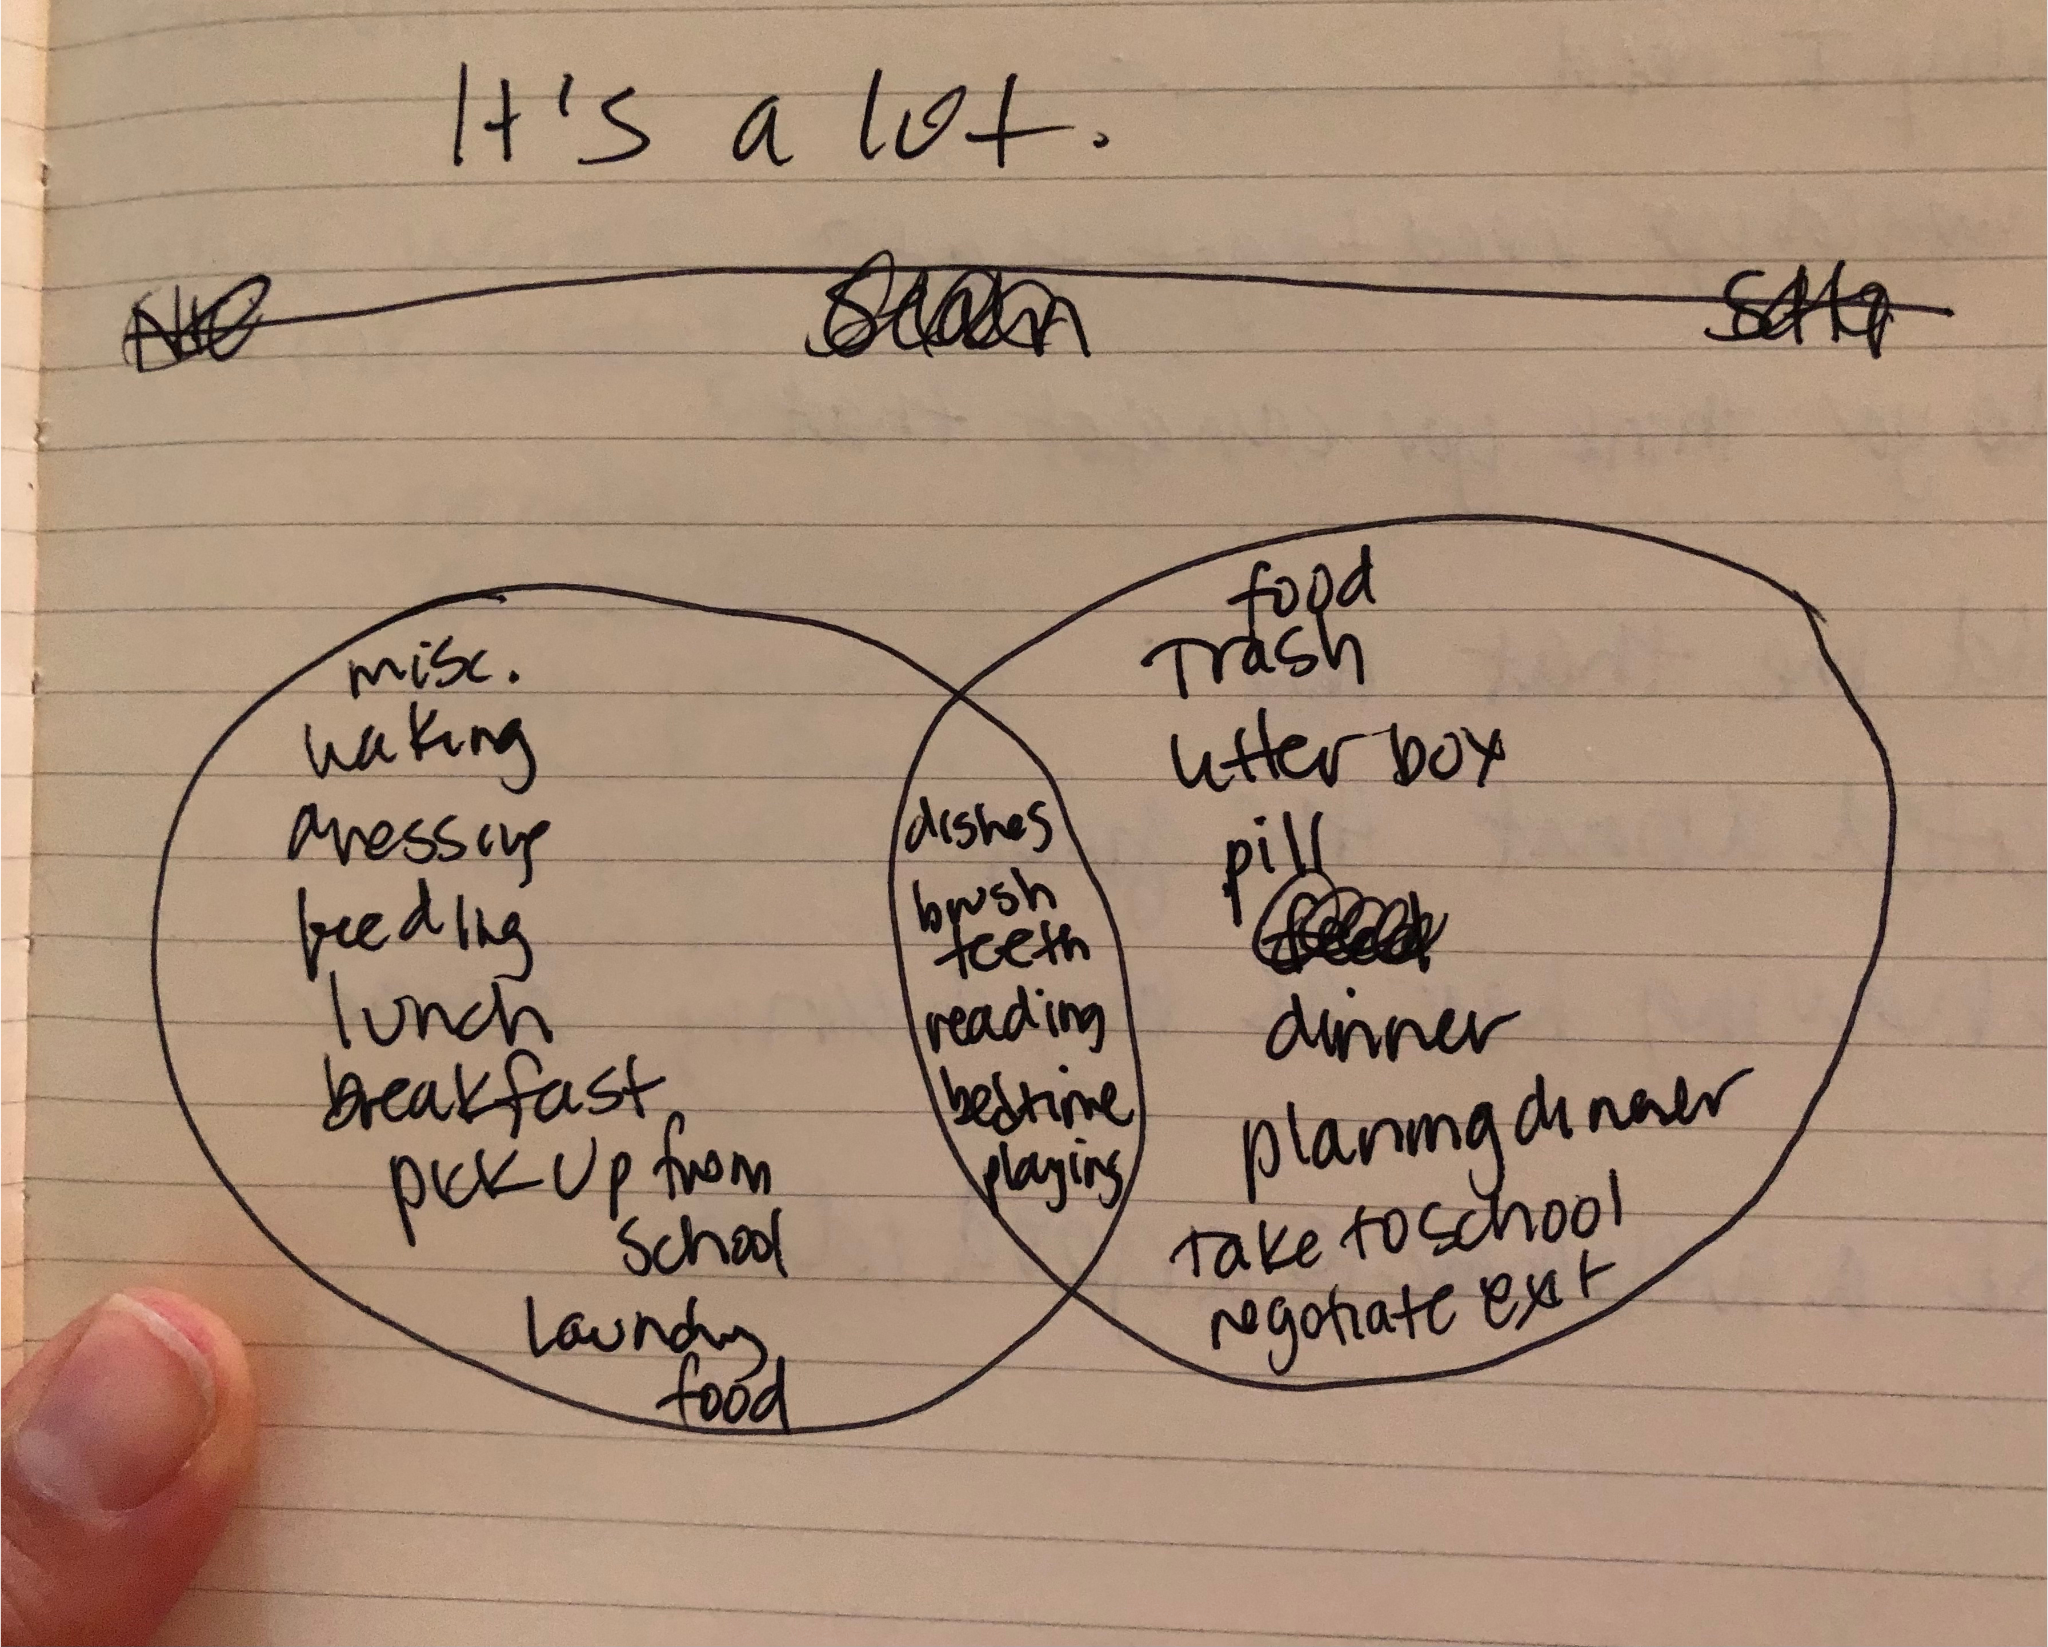 It's a lot.
misc.
waking
dressing
feeding
lunch
breakfast
pick up from
school
laundry
food
dishes
brush
teeth
reading
bedtime
playing
food
Trash
litter box
pill
dinner
planning dinner
Take to school
negotiate exit